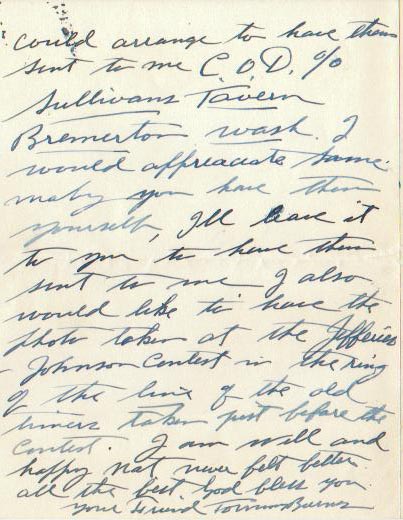 could arrange to have them
sent to me C.O.D. %
Sullivans Tavern
Bremerton wash. I
would affreaciate same.
maby you have them
yourself, I'll leave it
to you to have them
sent to me I also
would like to have the
photo taken at the Jefferies
- Johnson Contest in the ring
of the line of the old
timers taken just before the
Contest. I am well and
happy nat never felt better.
all the best. God bless you.
your friend Tommy Burns